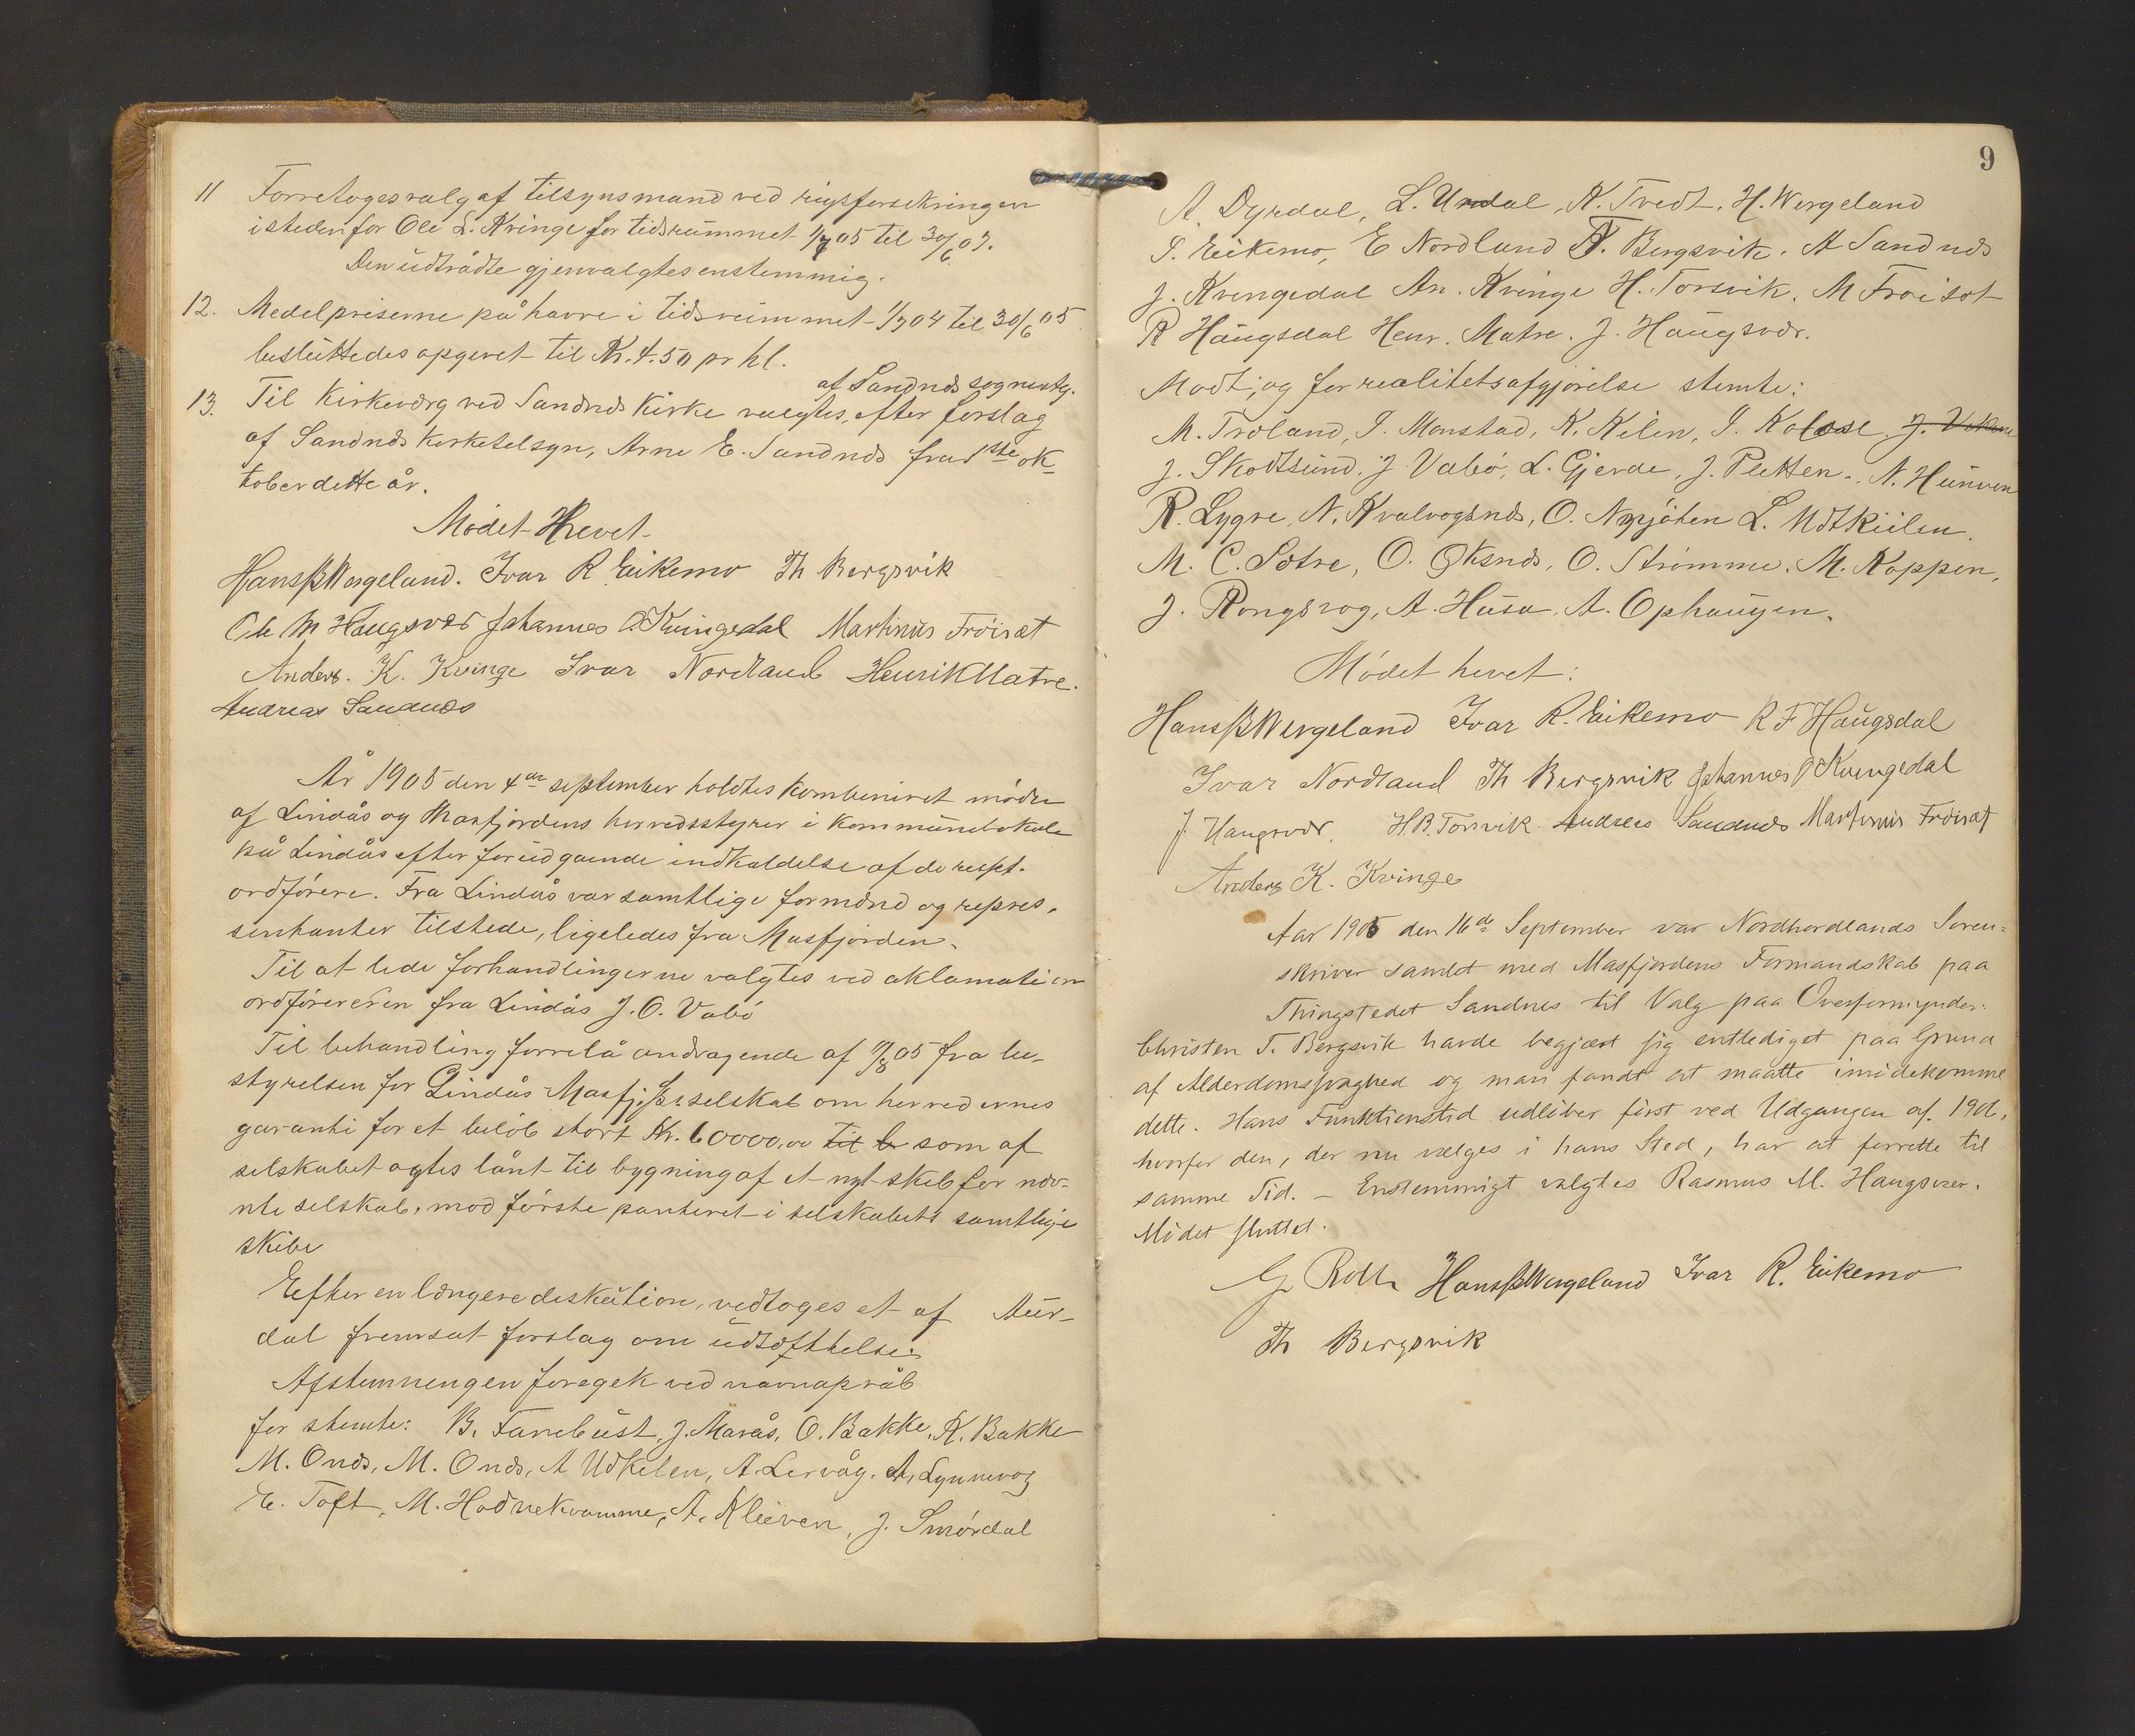 11 Forretoges valg af tilsynsmand ved rigsforsekringen
isteden for Ole L. Kvinge for tidsrummet 1/7 05 til 30/6 07.
Den udtrådte gjenvalgtes enstemmig.
12. Medelpriserne på havre i tidsrummet 1/7 04 til 30/6 05
besluttedes opgevet til Kr. 4.50 pr hl.
af Sandnæs sognestyr.
13. Til Kirkeværg ved Sandnæs Kirke valgtes, efter forslag
af Sandnæs Kerketelsyn, Arne E. Sandnæs fra 1ste ok-
tober dette år.
Mødet Hevet.
Hans B Wergeland. Ivar R Eikemo Th Bergsvik
Ole M Haugsvær Johannes O. Kvingedal Martinus Frøiset
Anders. K. Kvinge Ivar Nordland Henrik Matre.
Andreas Sandnæs
År 1905 den 4de september holdtes kombineret møde
af Lindås og Masfjordens herredsstyrer i kommunelokale
på Lindås efter forudgaende indkaldelse af de respt.
ordførere. Fra Lindås var samtlige formænd og repres,
sentanter tilstede, ligeledes fra Masfjorden.
Til at lede forhandlingerne valgtes ved aklamation
ordføreren fra Lindås J. O. Vabø
Til behandling forrelå andragende af 17/8 05 fra be-
styrelsen for Lindås-Masfj. Dsselskab om herredernes
garanti for et beløb stort Kr. 60000,00 til b som af
selskabet agtes lånt til bygning af et nyt skib for næv-
nte selskab, mod første panteret i selskabets samtlige
skibe
Eefter en længere deskution, vedtoges et af Aur-
dal fremsat forslag om udsættelse.
Afstemnengen foregek ved navnapråb
for stemte: B. Fanebust, J. Marås, O. Bakke, K. Bakke
M. Onæs, M. Onæs, A Udkelen, A. Lervåg. A, Lynnevog
E. Toft, M. Hodnekvamme, A. Kleiven, J. Smørdal
9
A. Dyrdal, L. Undal, K. Tvedt, H. Wergeland
I. Eikemo, E Nordland T. Bergsvik. A Sandnæs
J. Kvingedal An. Kvinge H. Torsvik. M Frøiset
R Haugsdal Henr. Matre. J. Haugsvær.
Modt, og for realitetsafgjørelse stemte:
M. Træland, I. Monstad, K. Kilen, I. Kolaas, J. Vikane
J. Skodtsund, J Vabø, L. Gjerde, J. Pletten., N. Hunven
R. Lygre, N. Kvalvogsnæs, O. Nyjøten L. Udtkiilen.
M. C. Sætre, O. Oksnæs, O. Strømme. M. Koppen,
J. Rongsvog, A. Husa, A. Ophaugen.
Mødet hevet:
Hans B Wergeland Ivar R. Eikemo R F Haugsdal
Ivar Nordland Th Bergsvik Johannes O Kvingedal
J Haugsvær. H B. Torsvik Andreas Sandnæs Martinus Frøiset
Anders K. Kvinge
Aar 1905 den 16de September var Nordhordlands Soren-
skriver samlet med Masfjordens Formandskab paa
Thingstedet Sandnes til Valg paa Overformynder.
Christen T. Bergsvik havde begjæret sig entlediget paa Grund
af Alderdomssvaghed og man fandt at maatte imødekomme
dette. Hans Funktionstid udløber først ved Udgangen af 1906,
hvorfor den, der nu vælges i hans Sted, har at forrette til
samme Tid. - Enstemmigt valgtes Rasmus M. Haugsvær.
Mødet sluttet.
G Roth Hans B Wergeland Ivar R. Eikemo
Th Bergsvik